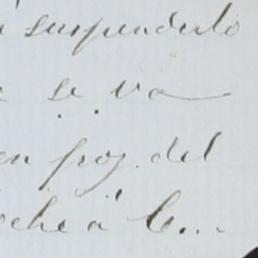 suspenderlo
se va
en proz. del
oche á C...